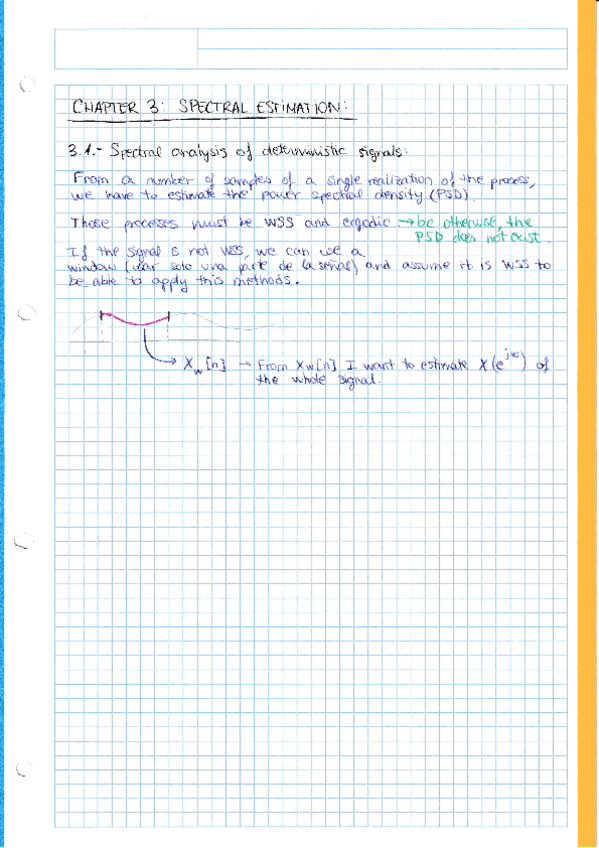 CHAPTER 3: SPECTRAL ESTIMATION:
3.1.- Spectral analysis of deterministic signals:
From a number of samples of a single realization of the process,
we have to estimate the power spectral density (PSD).
Those processes must be WSS and ergodic → bc otherwise, the
PSD does not exist.
If the signal is not WSS, we can use a
window (usar solo una parte de la señal) and assume it is WSS to
be able to apply this methods.
Xw[n] → From Xw[n] I want to estimate X(e^jω) of
the whole signal.